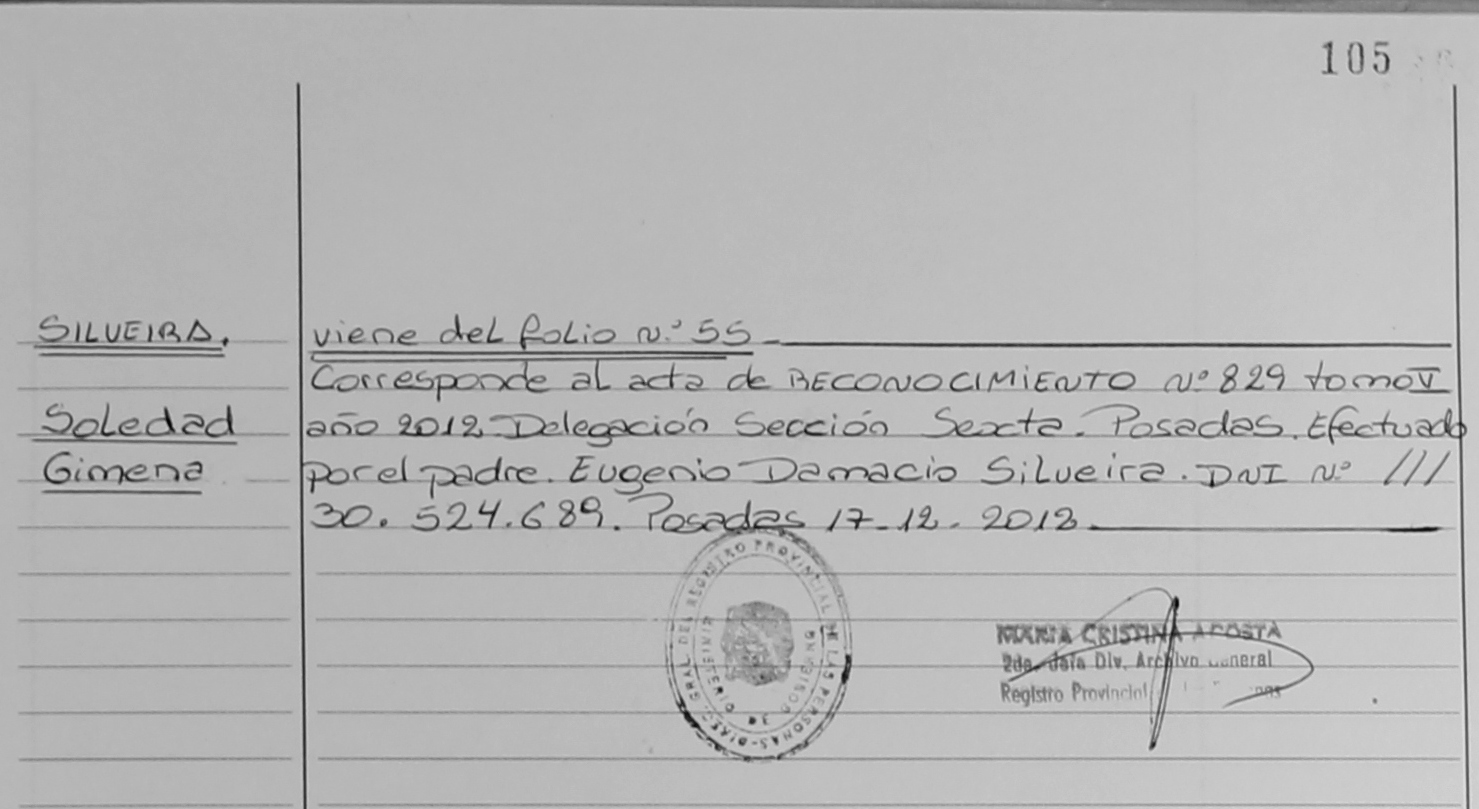 105
SILVEIRA.
Soledad
Gimena
viene del folio n.º 55
Corresponde al acta de RECONOCIMIENTO Nº 829 tomo V
año 2012 Delegación Sección Sexta. Posadas. Efectuado
por el padre. Eugenio Damacio Silveira. DNI Nº ///
30. 524.689. Posadas 17-12-2012
DIREC. GRAL. DEL REGISTRO PROVINCIAL DE LAS PERSONAS
MARIA CRISTINA ACOSTA
2da. Jefa Div. Archivo General
Registro Provincial